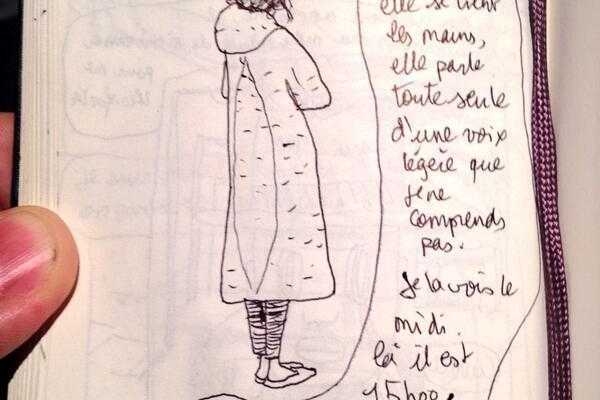 elle se tient
les mains,
elle parle
toute seule
d'une voix
légère que
je ne
comprends
pas.
Je la vois le
midi.
là il est
15h00